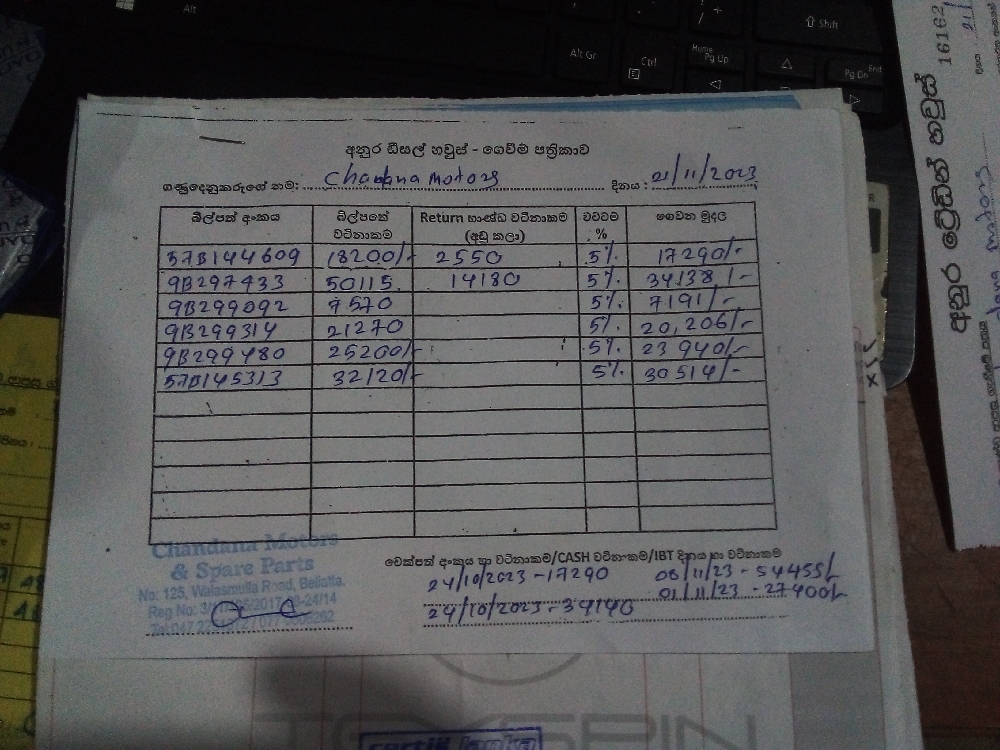 Alt
Shift
Alt Gr
Ctrl
Home
Pg Up
End
Pg Dn
අනුර ඩීසල් හවුස් - ගෙවීම් පත්‍රිකාව
ගණුදෙනුකරුගේ නම: Chandana Motors දිනය : 21/11/2023
බිල්පත් අංකය බිල්පතේ වටිනාකම Return භාණ්ඩ වටිනාකම (අඩු කලා) වට්ටම % ගෙවන මුදල
57B144609 18200/- 2550 5% 17290/-
9B297433 50115 14180 5% 34138/-
9B299092 7570 5% 7191/-
9B299314 21270 5% 20,206/-
9B299480 25200/- 5% 23940/-
57B145313 32120/- 5% 30514/-
Chandana Motors
& Spare Parts
No: 125, Walasmulla Road, Beliatta.
Reg No:
Tel:047
චෙක්පත් අංකය හා වටිනාකම/CASH වටිනාකම/IBT දිනය හා වටිනාකම
24/10/2023 - 17290 08/11/23 - 54455/-
24/10/2023 - 34140 01/11/23 - 27400/-
අනුර ට්‍රේඩින් හවුස්
16162